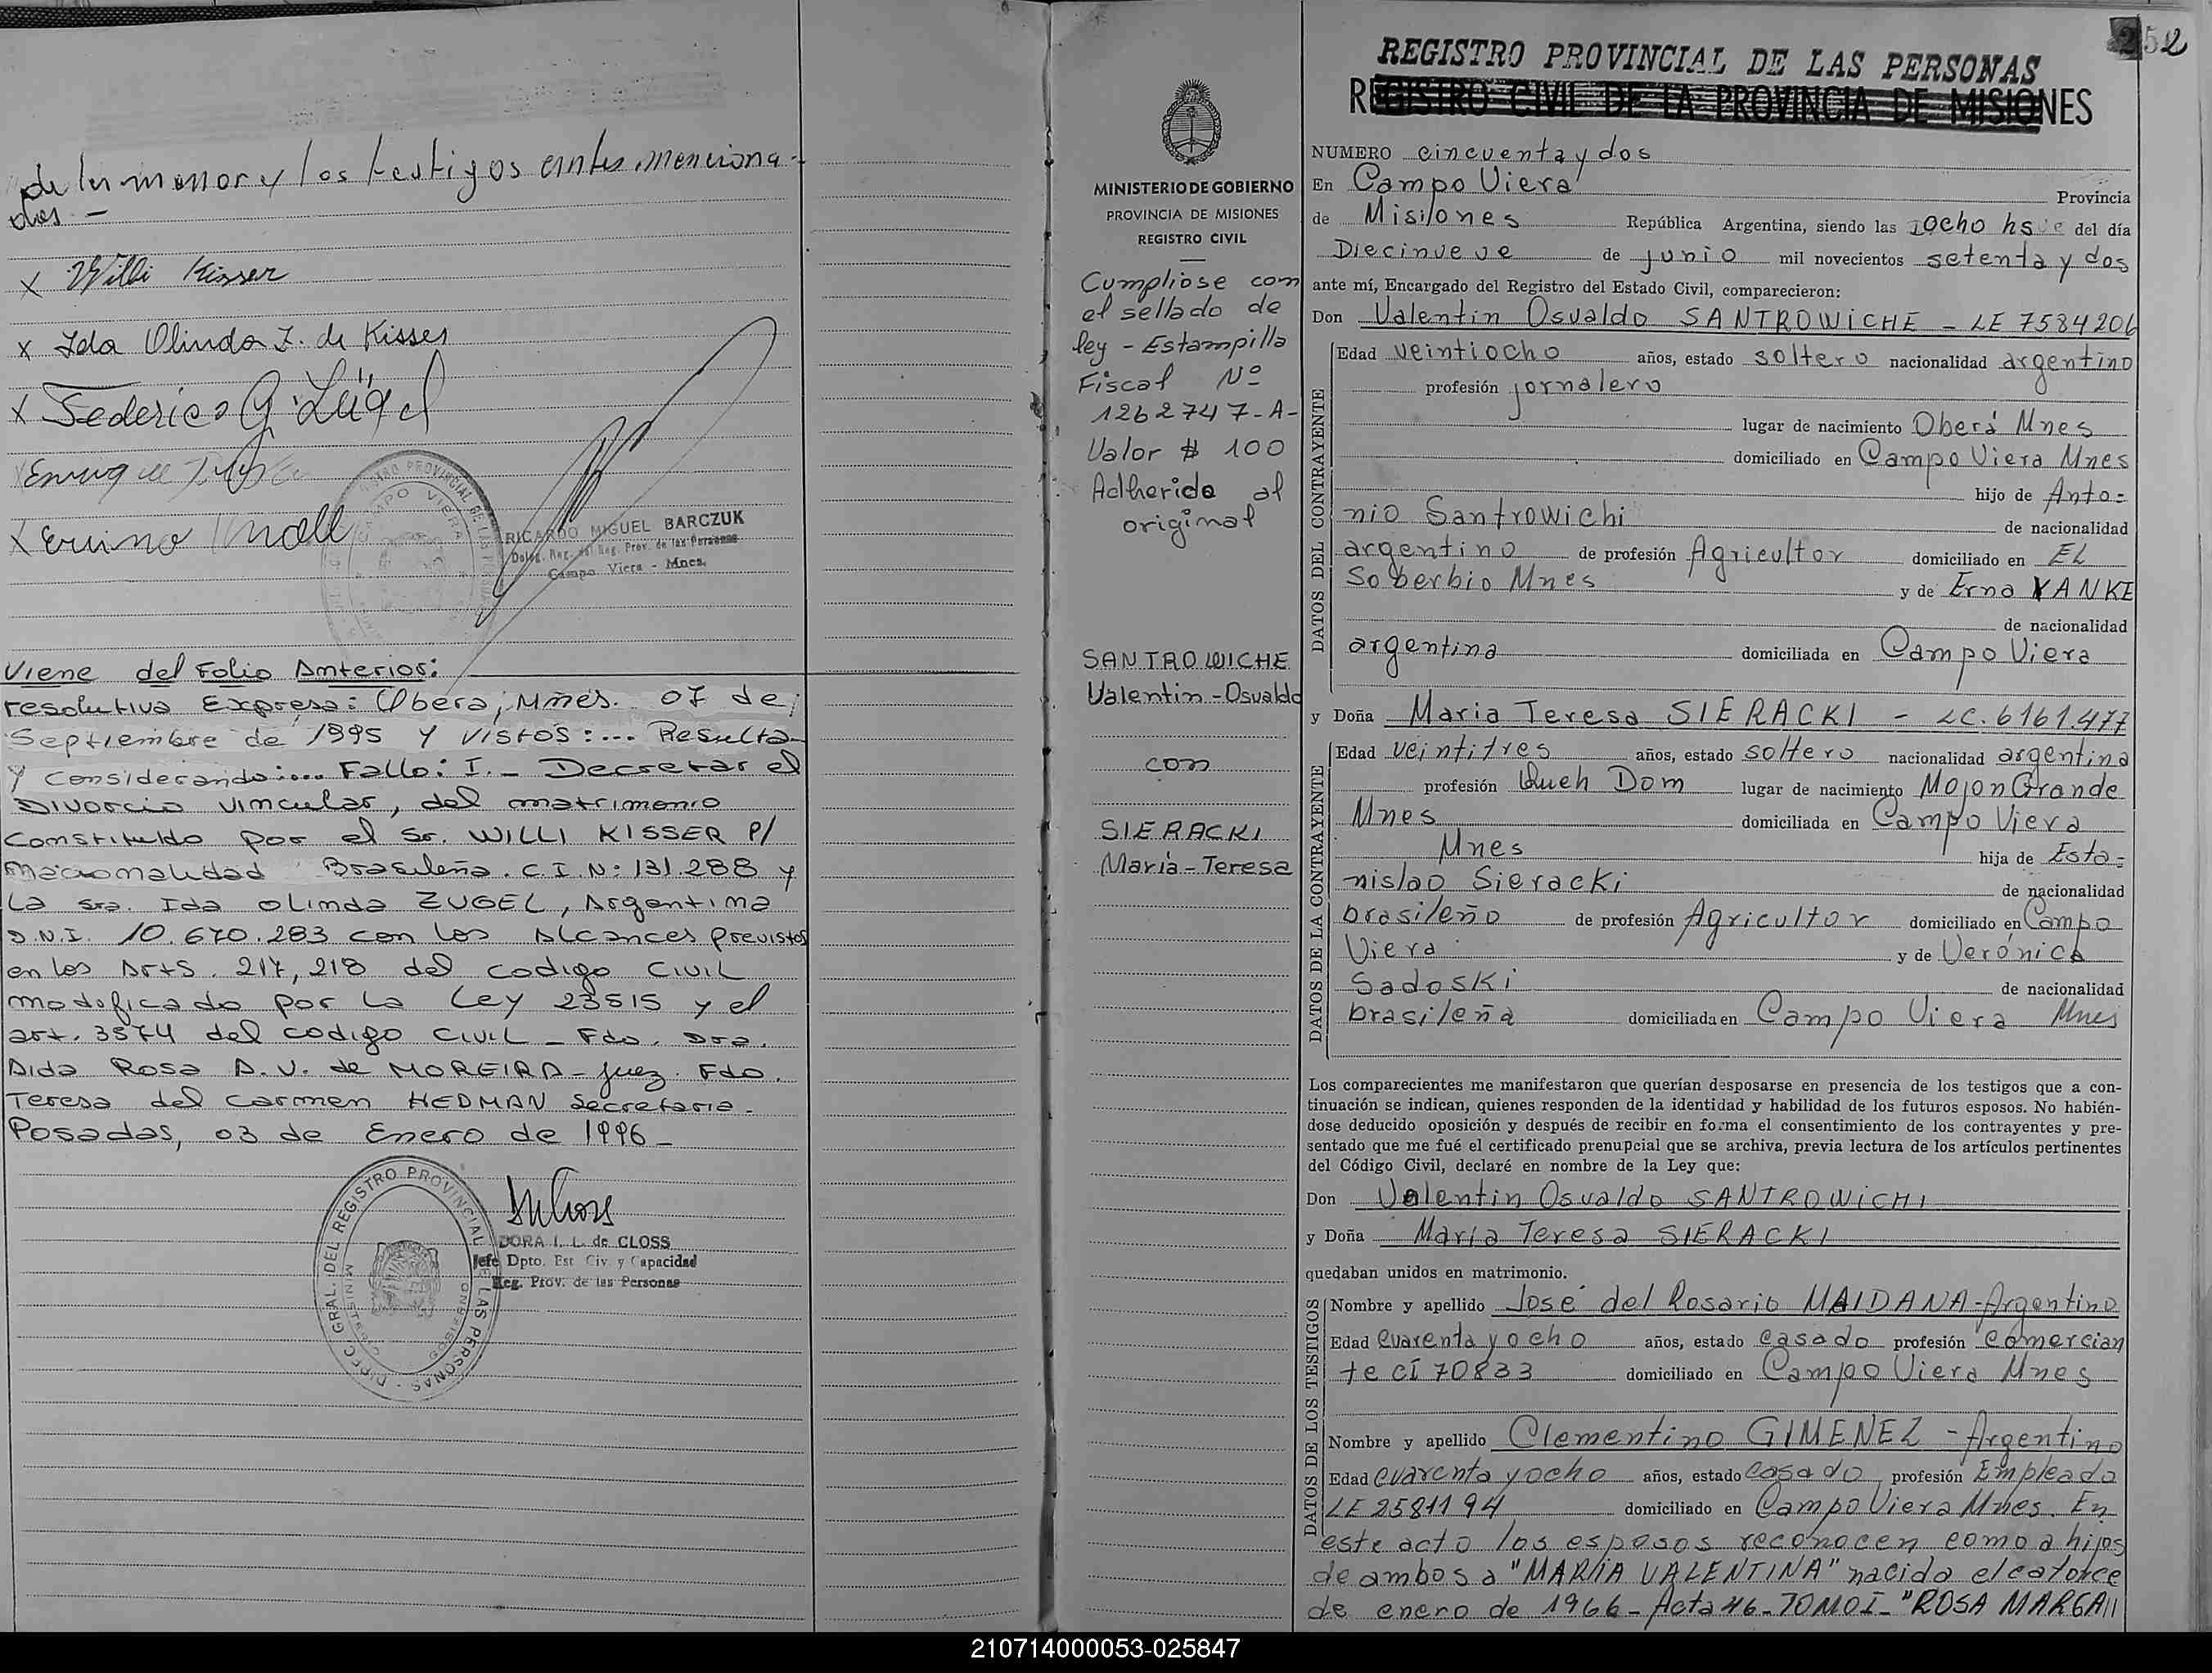 de la menor y los testigos antes menciona-
dos -
x Willi Kisser
x Ida Olinda Z. de Kisser
x Federico G. Zügel
Enrique
x Eruino Knoll
RICARDO MIGUEL BARCZUK
Deleg. Reg. del Reg. Prov. de las Personas
Campo Viera - Mnes.
REGISTRO PROVINCIAL DE LAS PERSONAS
CAMPO VIERA
Viene del Folio Anterior:
resolutiva Expresa: Obera, Mnes. 07 de
Septiembre de 1995 y vistos:... Resulta-
y considerando:... Fallo: I.- Decretar el
Divorcio vincular, del matrimonio
constituido por el Sr. WILLI KISSER P/
nacionalidad Brasileña. C.I. Nº: 131.288 y
La Sra. Ida Olinda ZUGEL, Argentina
D.N.I. 10.670.283 con los Alcances previstos
en los Arts. 217, 218 del codigo CIVIL
modificado por la Ley 23515 y el
art. 3574 del codigo CIVIL - Fdo. Dra.
Aida Rosa A.V. de MOREIRA - Juez. Fdo.
Teresa del Carmen HEDMAN Secretaria.
Posadas, 03 de Enero de 1996 -
DIREC. GRAL. DEL REGISTRO PROVINCIAL DE LAS PERSONAS
DORA I. L. de CLOSS
Jefe Dpto. Est. Civ. y Capacidad
Reg. Prov. de las Personas
MINISTERIO DE GOBIERNO
PROVINCIA DE MISIONES
REGISTRO CIVIL
Cumpliose con
el sellado de
ley - Estampilla
Fiscal Nº
1262747-A-
Valor $ 100
Adherida al
original
SANTROWICHE
Valentin - Osvaldo
con
SIERACKI
María - Teresa
252
REGISTRO PROVINCIAL DE LAS PERSONAS
REGISTRO CIVIL DE LA PROVINCIA DE MISIONES
NUMERO cincuenta y dos
En Campo Viera Provincia
de Misiones República Argentina, siendo las ocho hs del día
Diecinueve de junio mil novecientos setenta y dos
ante mí, Encargado del Registro del Estado Civil, comparecieron:
Don Valentin Osvaldo SANTROWICHE - LE 7584206
DATOS DEL CONTRAYENTE
Edad veintiocho años, estado soltero nacionalidad argentino
profesión jornalero
lugar de nacimiento Oberá Mnes
domiciliado en Campo Viera Mnes
hijo de Anto=
nio Santrowichi de nacionalidad
argentino de profesión Agricultor domiciliado en EL
Soberbio Mnes y de Erna YANKE
de nacionalidad
argentina domiciliada en Campo Viera
y Doña Maria Teresa SIERACKI - LC. 6161.477
DATOS DE LA CONTRAYENTE
Edad veintitres años, estado soltero nacionalidad argentina
profesión Queh Dom lugar de nacimiento Mojon Grande
Mnes domiciliada en Campo Viera
Mnes hija de Esta=
nislao Sieracki de nacionalidad
brasileño de profesión Agricultor domiciliado en Campo
Viera y de Verónica
Sadoski de nacionalidad
brasileña domiciliada en Campo Viera Mnes
Los comparecientes me manifestaron que querían desposarse en presencia de los testigos que a con-
tinuación se indican, quienes responden de la identidad y habilidad de los futuros esposos. No habién-
dose deducido oposición y después de recibir en forma el consentimiento de los contrayentes y pre-
sentado que me fué el certificado prenupcial que se archiva, previa lectura de los artículos pertinentes
del Código Civil, declaré en nombre de la Ley que:
Don Valentin Osvaldo SANTROWICHI
y Doña María Teresa SIERACKI
quedaban unidos en matrimonio.
DATOS DE LOS TESTIGOS
Nombre y apellido José del Rosario MAIDANA - Argentino
Edad cuarenta y ocho años, estado casado profesión comercian
te CI 70833 domiciliado en Campo Viera Mnes
Nombre y apellido Clementino GIMENEZ - Argentino
Edad cuarenta y ocho años, estado casado profesión Empleado
LE 2581194 domiciliado en Campo Viera Mnes. En
este acto los esposos reconocen como a hijos
de ambos a "MARIA VALENTINA" nacida el catorce
de enero de 1966 - Acta 46 - TOMO I - "ROSA MARGA
210714000053-025847